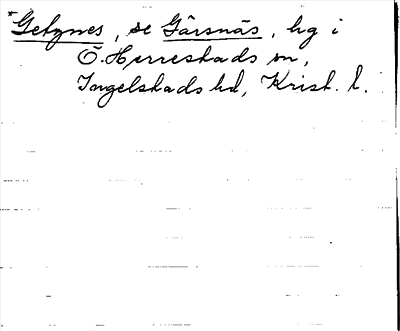 *Getznes, se Gärsnäs, hg i
Ö. Herrestads sn,
Ingelstads hd, Krist. l.